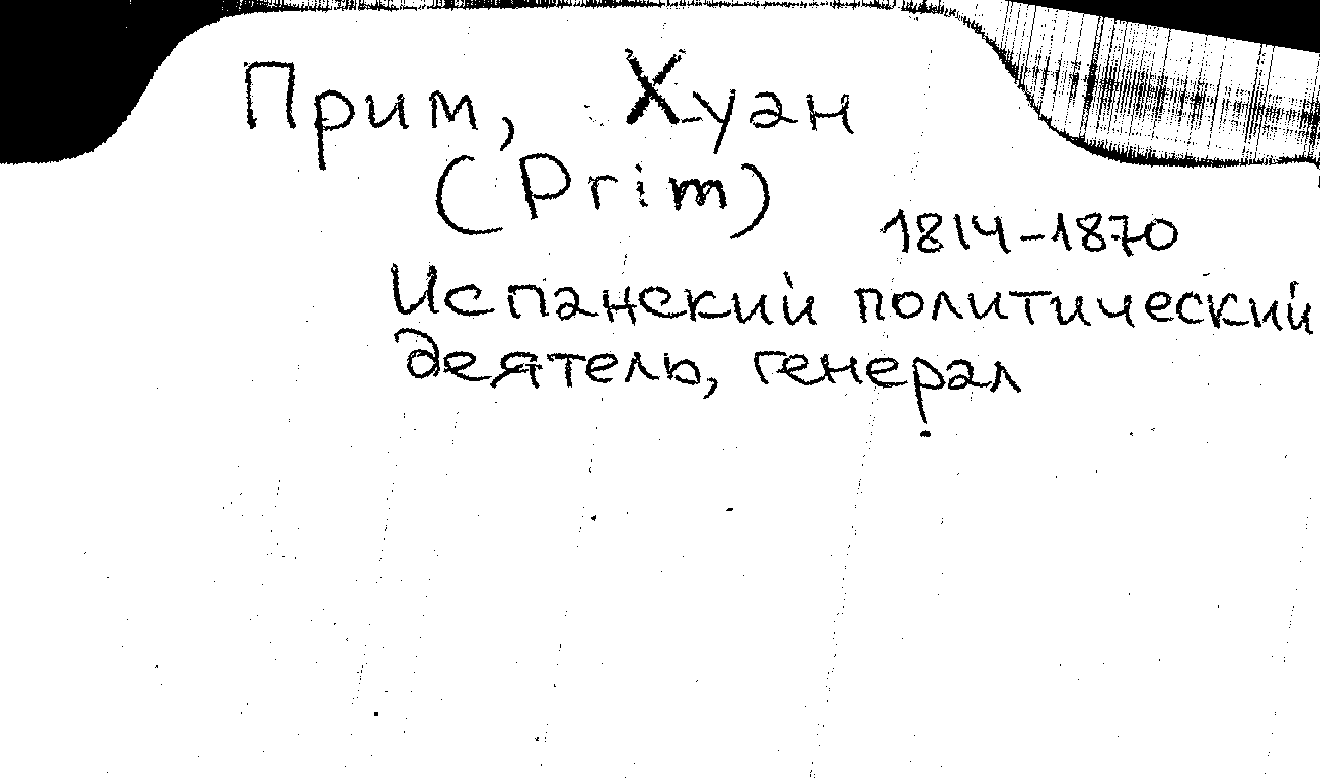 Прим, Хуан
(Prim)
1814-1870
Испанский политический
деятель, генерал